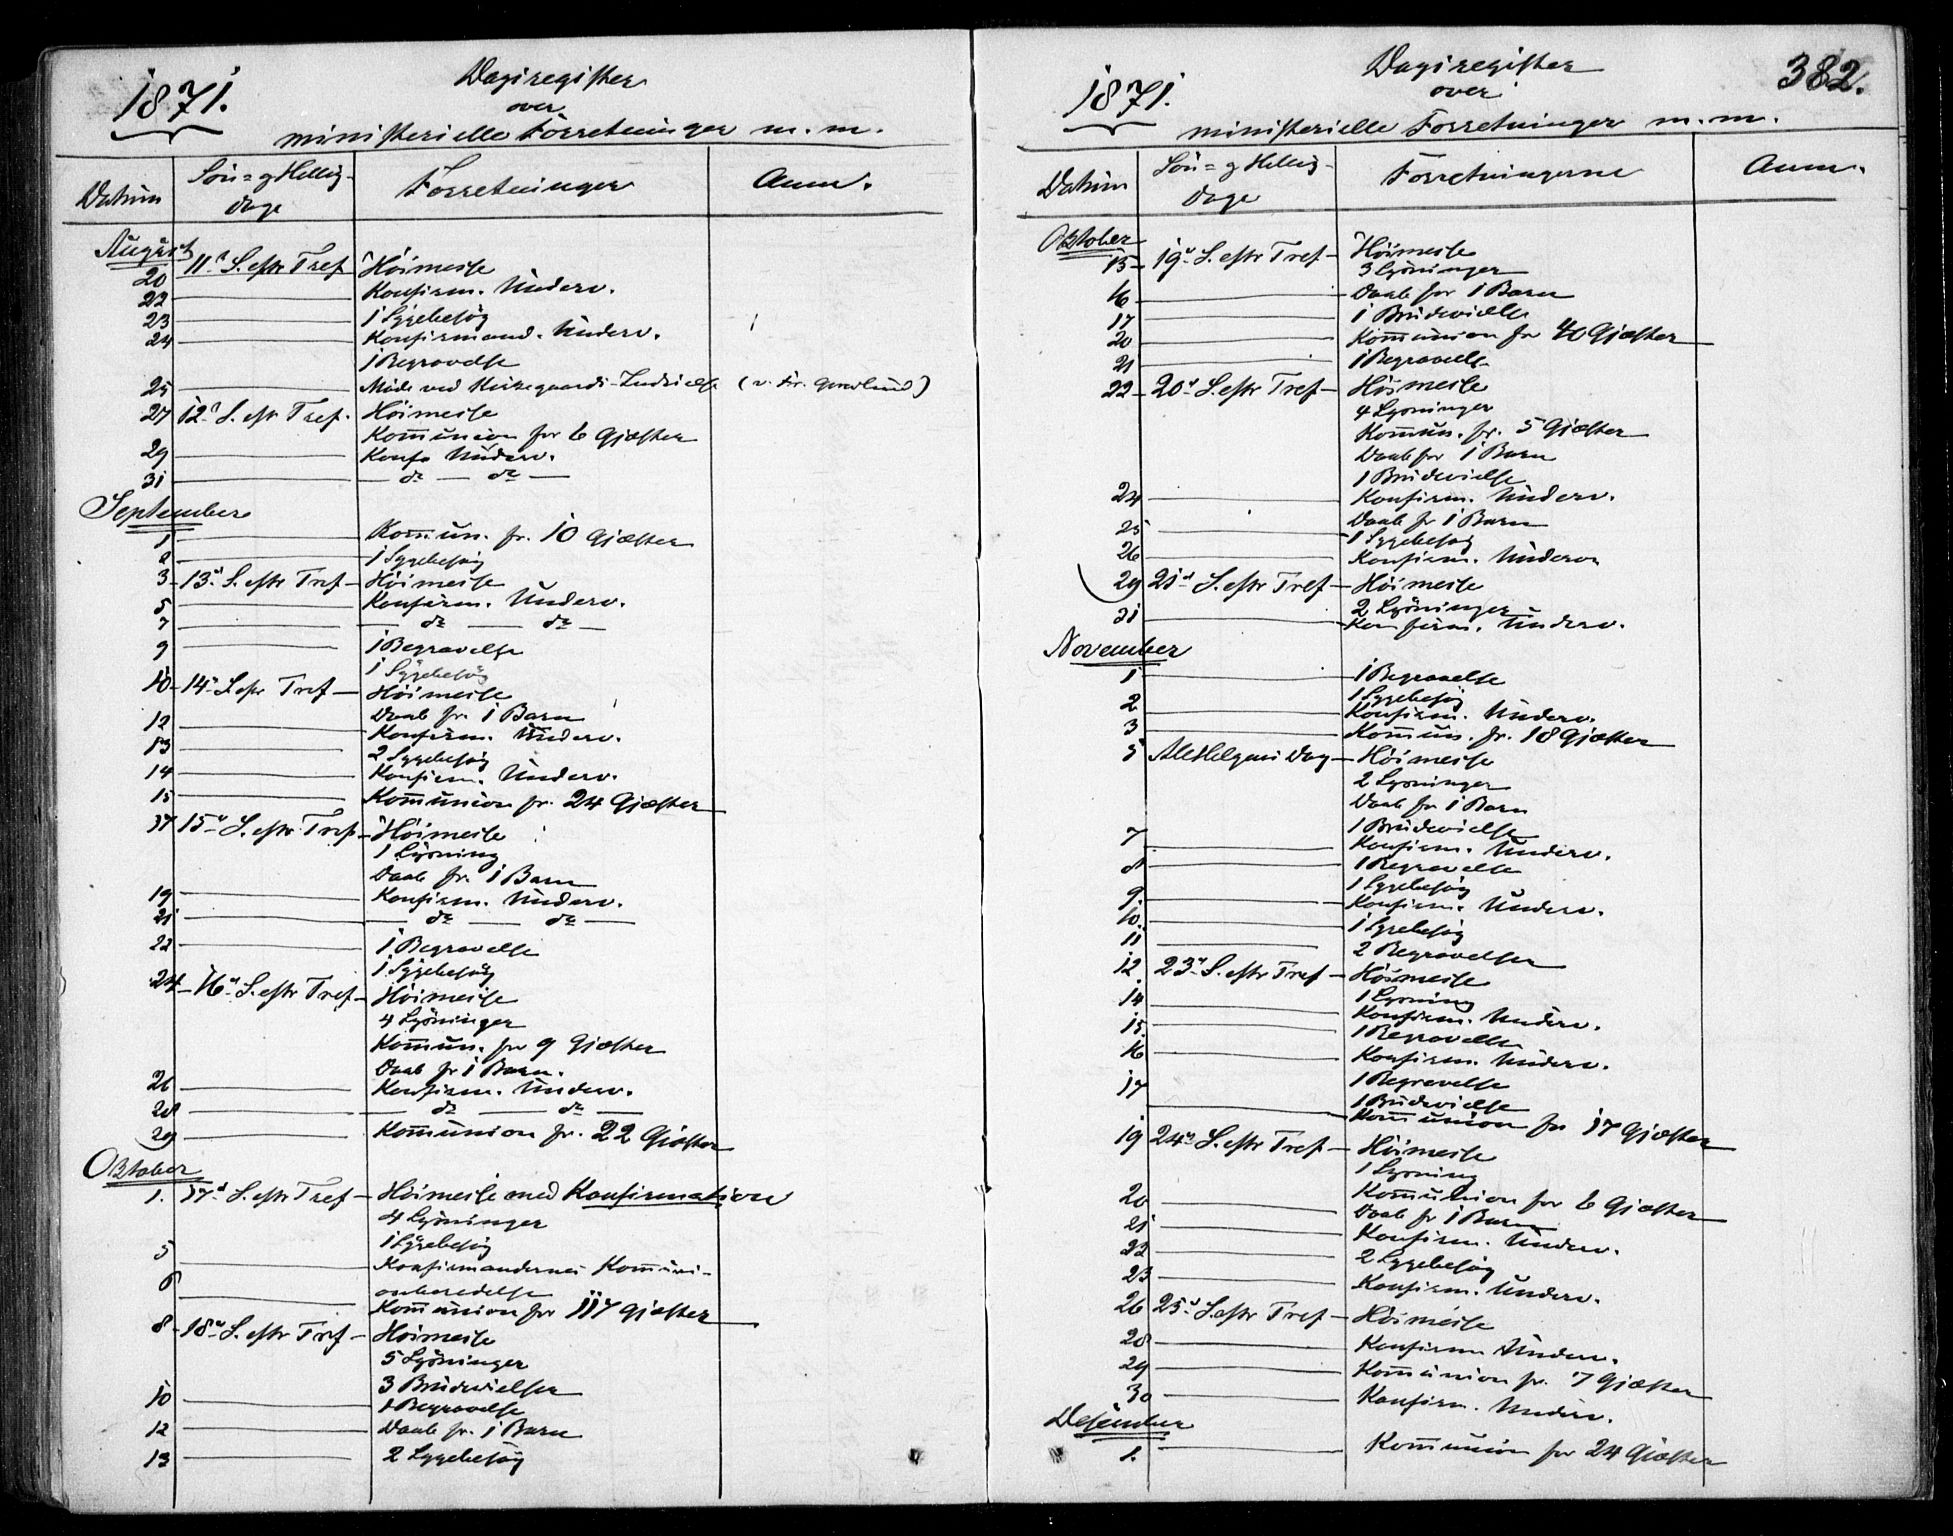 1871.
Dagsregister
over
ministerielle Forretninger m.m.
Datum Søn= og Hellig- Forretninger Anm.
dage
August
20 11te S. eftr Tref Høimesse
22 Konfirm. Underv.
23 1 Sygebesøg
24 Konfirmand. Underv.
1 Begravelse
25 Møde ved Kirkegaards-Indvielse
27 12te S. eftr Tref. Høimesse
Kommunion for 6 Gjæster
29 Konf. Underv.
31 — do — do —
September
1 Kommun. fr. 10 Gjæster
2 1 Sygebesøg
3 13de S. eftr Tref Høimesse
5 Konfirm. Underv.
7 — do — do —
9 1 Begravelse
1 Sygebesøg
10 14de S. eftr Tref Høimesse
Daab fr. 1 Barn
12 Konfirm. Underv.
13 2 Sygebesøg
14 Konfirm. Underv.
15 Kommunion fr. 24 Gjæster
17 15de S. eftr Tref. Høimesse
1 Lysning
Daab fr. 1 Barn
19 Konfirm. Underv.
21 — do — do —
22 1 Begravelse
1 Sygebesøg
24 16de S. eftr Tref Høimesse
4 Lysninger
Kommun. for 9 Gjæster
Daab fr 1 Barn.
26 Konfirm. Underv.
28 — do — do —
29 Kommunion fr. 22 Gjæster
Oktober
1. 17de S. eftr Tref Høimesse med Konfirmation
4 Lysninger
1 Sygebesøg
5 Konfirmandernes Kommuni-
onberedelse
6 Kommunion for 117 Gjæster
8 18de S. eftr Tref Høimesse
5 Lysninger
3 Brudevielser
10 1 Begravelse
12 Daab fr. 1 Barn
13 2 Sygebesøg
1871.
Dagsregister
over
ministerielle Forretninger m.m.
382.
Datum Søn= og Hellig- Forretningerne Anm.
dage
Oktober
15 19de S. eftr Tref Høimesse
3 Lysninger
16 Daab for 1 Barn
17 1 Brudevielse
20 Kommunion for 40 Gjæster
21 1 Begravelse
22 20de S. eftr Tref Høimesse
4 Lysninger
Kommun. fr. 5 Gjæster
Daab for 1 Barn
1 Brudevielse
24 Konfirm. Underv.
Daab fr 1 Barn
25 1 Sygebesøg
26 Konfirm. Underv.
29 21de S. eftr Tref Høimesse
2 Lysninger
31 Konfirm. Underv.
November
1 1 Begravelse
1 Sygebesøg
2 Konfirm. Underv.
3 Kommun. fr. 18 Gjæster
5 Alle Helgens Dag Høimesse
2 Lysninger
Daab for 1 Barn
1 Brudevielse
7 Konfirm. Underv.
8 1 Begravelse
1 Sygebesøg
9 Konfirm. Underv.
10. 1 Sygebesøg
11 2 Begravelser
12 23de S. eftr Tref Høimesse
1 Lysning
14 Konfirm. Underv.
15. 1 Begravelse
16 Konfirm. Underv.
17 1 Begravelse
1 Brudevielse
Kommunion for 17 Gjæster
19 24de S. eftr Tref Høimesse
1 Lysning
Kommunion for 6 Gjæster
20 Daab fr 1 Barn
21 Konfirm. Underv.
22 2 Sygebesøg
23 Konfirm. Underv.
26 25de S. eftr Tref Høimesse
28 Konfirm Underv.
29 Kommunion fr. 7 Gjæster
30 Konfirm. Underv.
Desember
1. Kommunion for 24 Gjæster